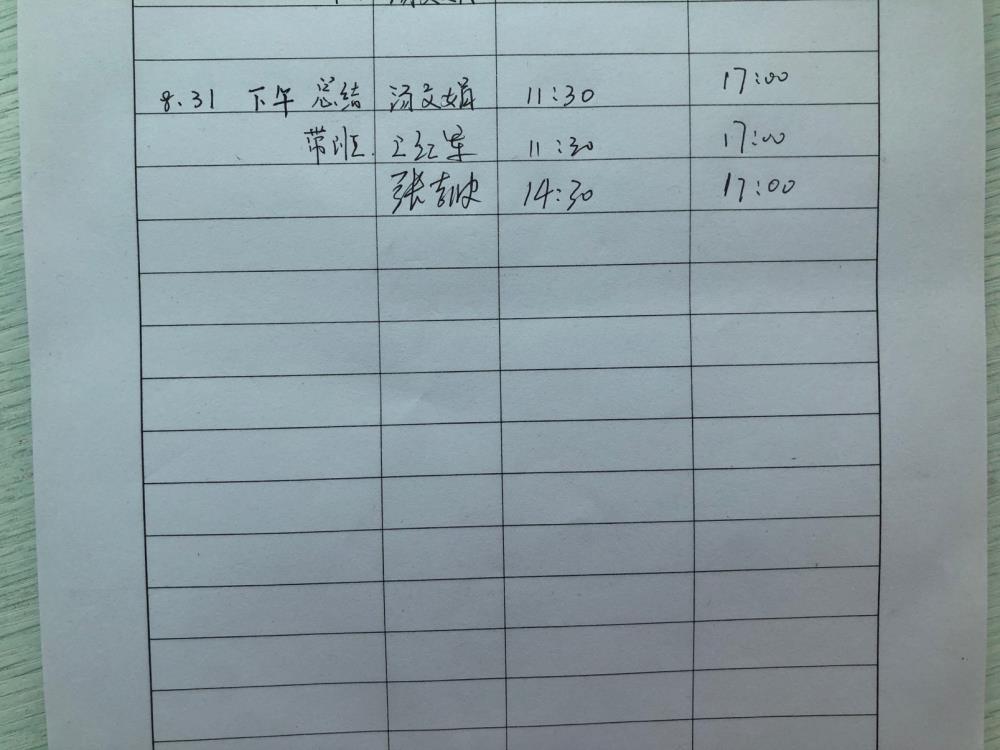 8.31 下午 总结 汤文娟 11:30 17:00
带班 王红军 11:30 17:00
张 14:30 17:00